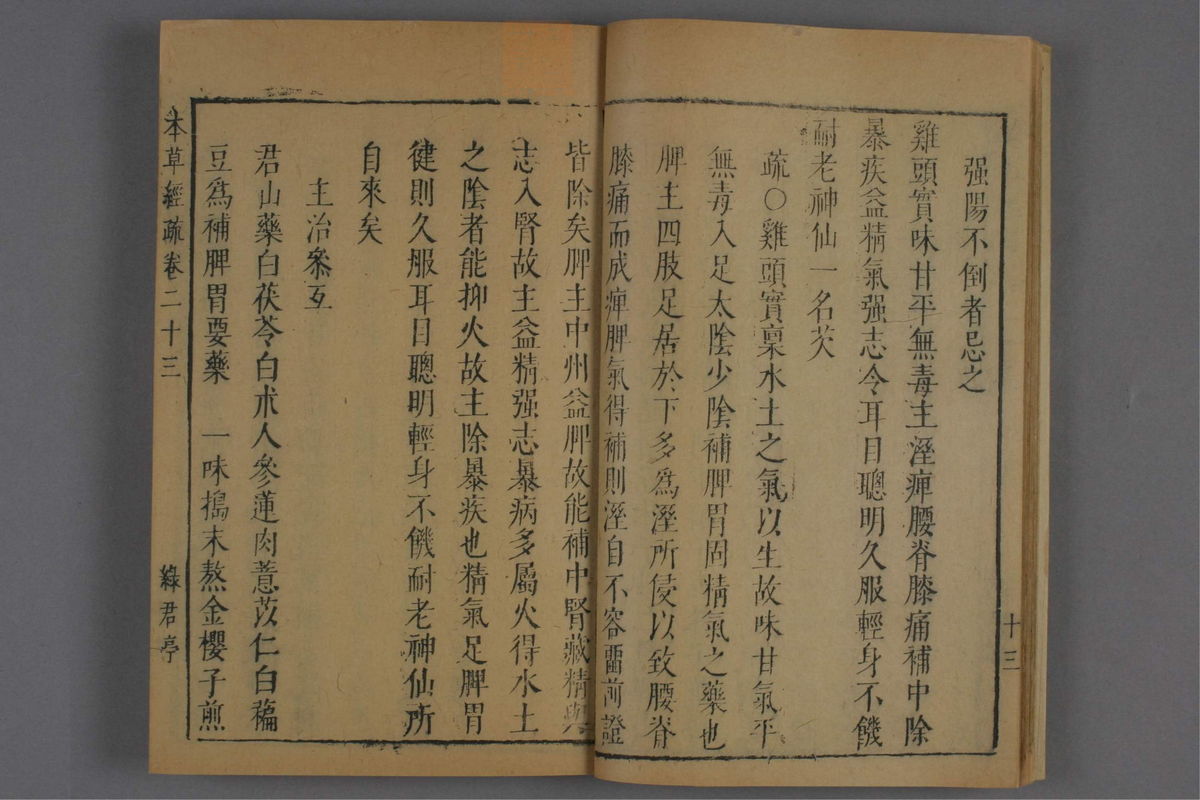 强陽不倒者忌之
雞頭實味甘平無毒主溼痺腰脊膝痛補中除
暴疾益精氣强志令耳目聰明久服輕身不饑
耐老神仙一名芡
疏○雞頭實稟水土之氣以生故味甘氣平
無毒入足太陰少陰補脾胃固精氣之藥也
脾主四肢足居於下多爲溼所侵以致腰脊
膝痛而成痺脾氣得補則溼自不容畱前證
十三
皆除矣脾主中州益脾故能補中腎藏精與
志入腎故主益精强志暴病多屬火得水土
之陰者能抑火故主除暴疾也精氣足脾胃
健則久服耳目聰明輕身不饑耐老神仙所
自來矣
主治叅互
君山藥白茯苓白朮人參蓮肉薏苡仁白藊
豆爲補脾胃要藥　一味搗末熬金櫻子煎
本草經疏卷二十三
綠君亭